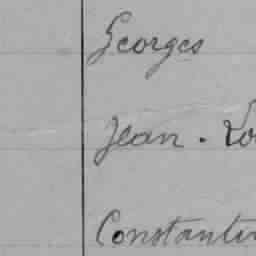 Georges
Jean. Lo
Constantin